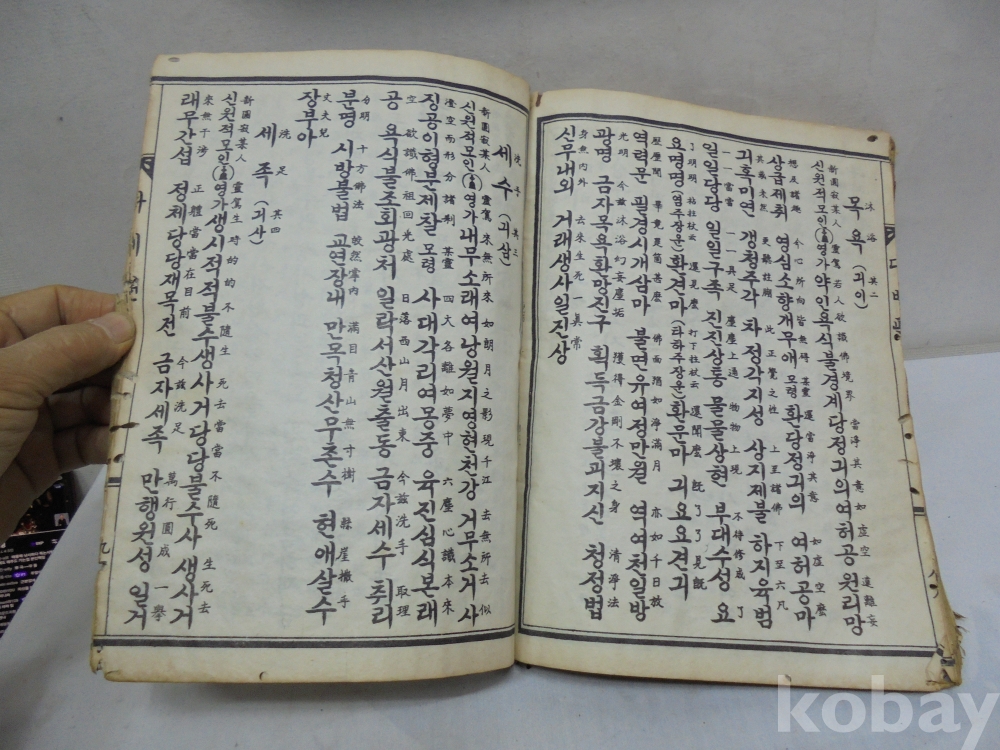 沐浴 其二
목욕 (긔이)
新圓寂某人 靈駕 若人欲識佛境界 當淨其意如虛空 遠離妄
신원적모인 영가 약인욕식불경계당정긔의여허공 원리망
想及諸趣 令心所向皆無碍 某靈 還當淨其意 如虛空麽
상급제취 영심소향개무애 모령 환당정긔의 여허공마
其或未然 更聽註脚 此正覺之性 上至諸佛 下至六凡
긔혹미연 갱청주각 차정각지성 상지제불 하지육범
一一當當 一一具足 塵塵上通 物物上現 不待修成 了
일일당당 일일구족 진진상통 물물상현 부대수성 요
了明明 拈柱杖云 還見麽 打下柱杖云 還聞麽 旣了了見旣
요명명(염주장운)환견마(타하주장운)환문마 긔요요견긔
歷歷聞 畢竟是箇甚麽 佛面猶如淨滿月 亦如千日放
역력문 필경시개삼마 불면유여정만월 역여천일방
光明 今玆沐浴幻妄塵垢 獲得金剛不壞之身 清淨法
광명 금자목욕환망진구 획득금강불괴지신 청정법
身無內外 去來生死一眞常
신무내외 거래생사일진상
洗手 其三
세수 (긔삼)
新圓寂某人 靈駕 來無所來 如朗月之影現千江 去無所去 似
신원적모인 영가내무소래여낭월지영현천강 거무소거 사
澄空而形分諸刹 某靈 四大各離如夢中 六塵心識本來
징공이형분제찰 모령 사대각리여몽중 육진심식본래
空 欲識佛祖回光處 日落西山月出東 今玆洗手 取理
공 욕식불조회광처 일락서산월출동 금자세수 취리
分明 十方佛法 皎然掌內 滿目青山無寸樹 懸崖撒手
분명 시방불법 교연장내 만목청산무촌수 현애살수
丈夫兒
장부아
洗足 其四
세족 (긔사)
新圓寂某人 靈駕生時的的不隨生 死去當當不隨死 生死去
신원적모인 영가생시적적불수생사거당당불수사 생사거
來無干涉 正體當當在目前 今玆洗足 萬行圓成 一擧
래무간섭 정체당당재목전 금자세족 만행원성 일거
kobay